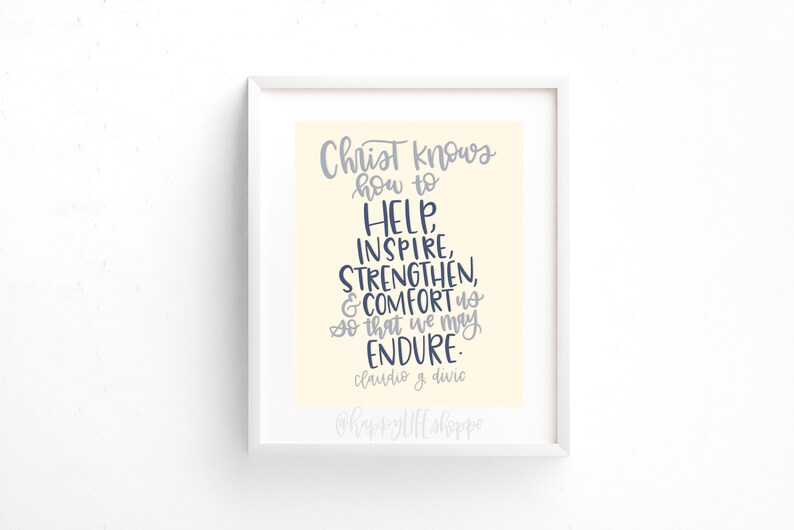 Christ knows
how to
HELP,
INSPIRE,
STRENGTHEN,
& COMFORT us
so that we may
ENDURE.
claudio g. divic
@happyLIFFshoppe